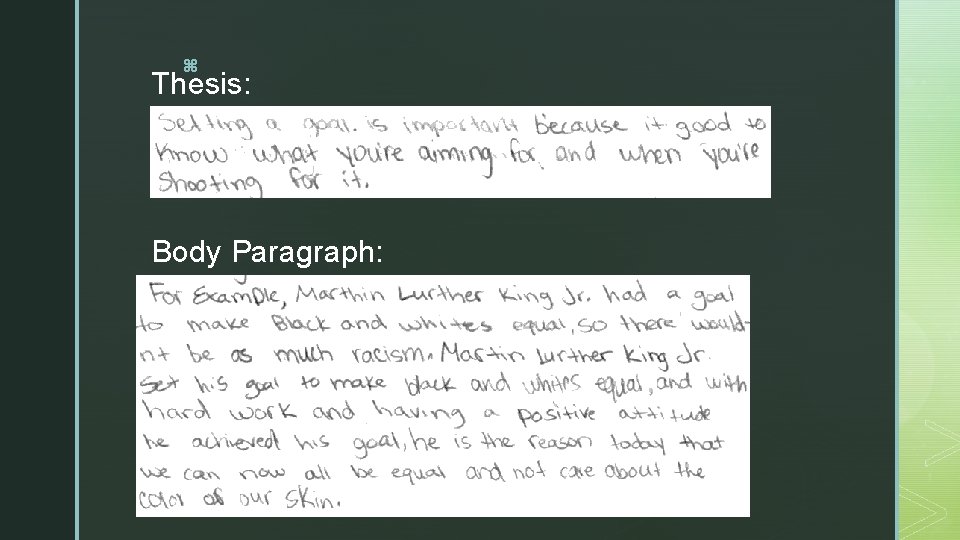 Thesis:
Setting a goal. is important because it good to
know what you're aiming for and when you're
shooting for it.
Body Paragraph:
For Example, Marthin Lurther King Jr. had a goal
to make Black and whites equal, so there would-
nt be as much racism. Martin Lurther King Jr.
set his goal to make black and whites equal, and with
hard work and having a positive attitude
he achieved his goal, he is the reason today that
we can now all be equal and not care about the
color of our skin.